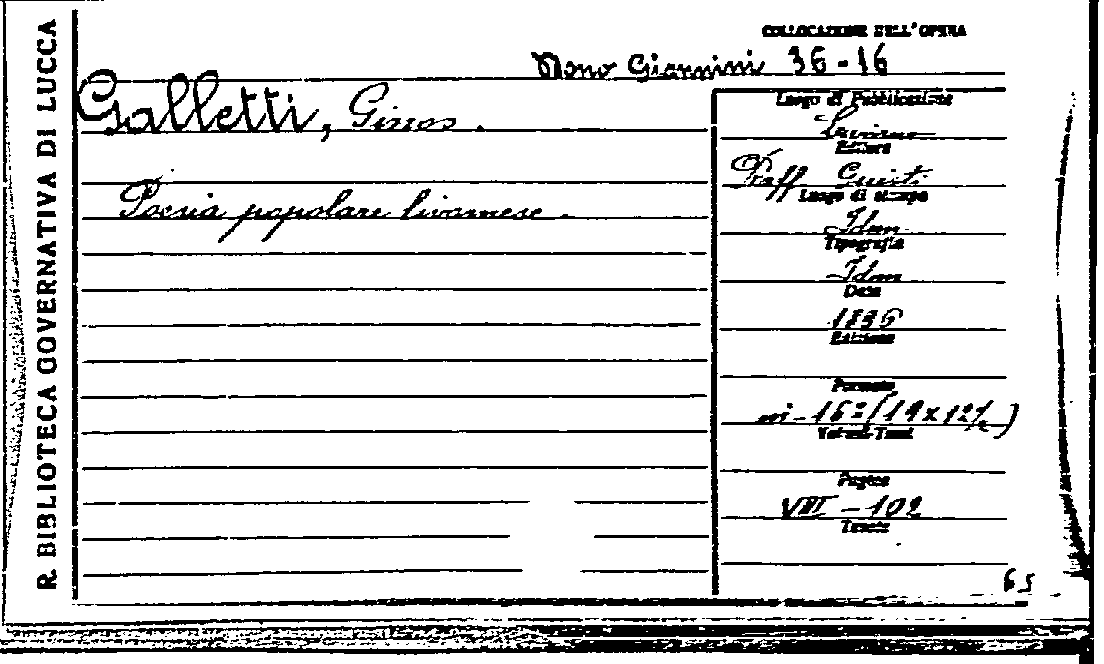 R. BIBLIOTECA GOVERNATIVA DI LUCCA
COLLOCAZIONE DELL'OPERA
Mono Giannini 36-16
Galletti, Ginos.
Poesia popolare livornese.
Luogo di Pubblicazione
Livorno
Editore
Raff. Giusti
Luogo di stampa
Idem
Tipografia
Idem
Data
1896
Edizione
Formato
in-16º (19 x 12½)
Volumi-Tomi
Pagine
VIII - 102
Tavole
65